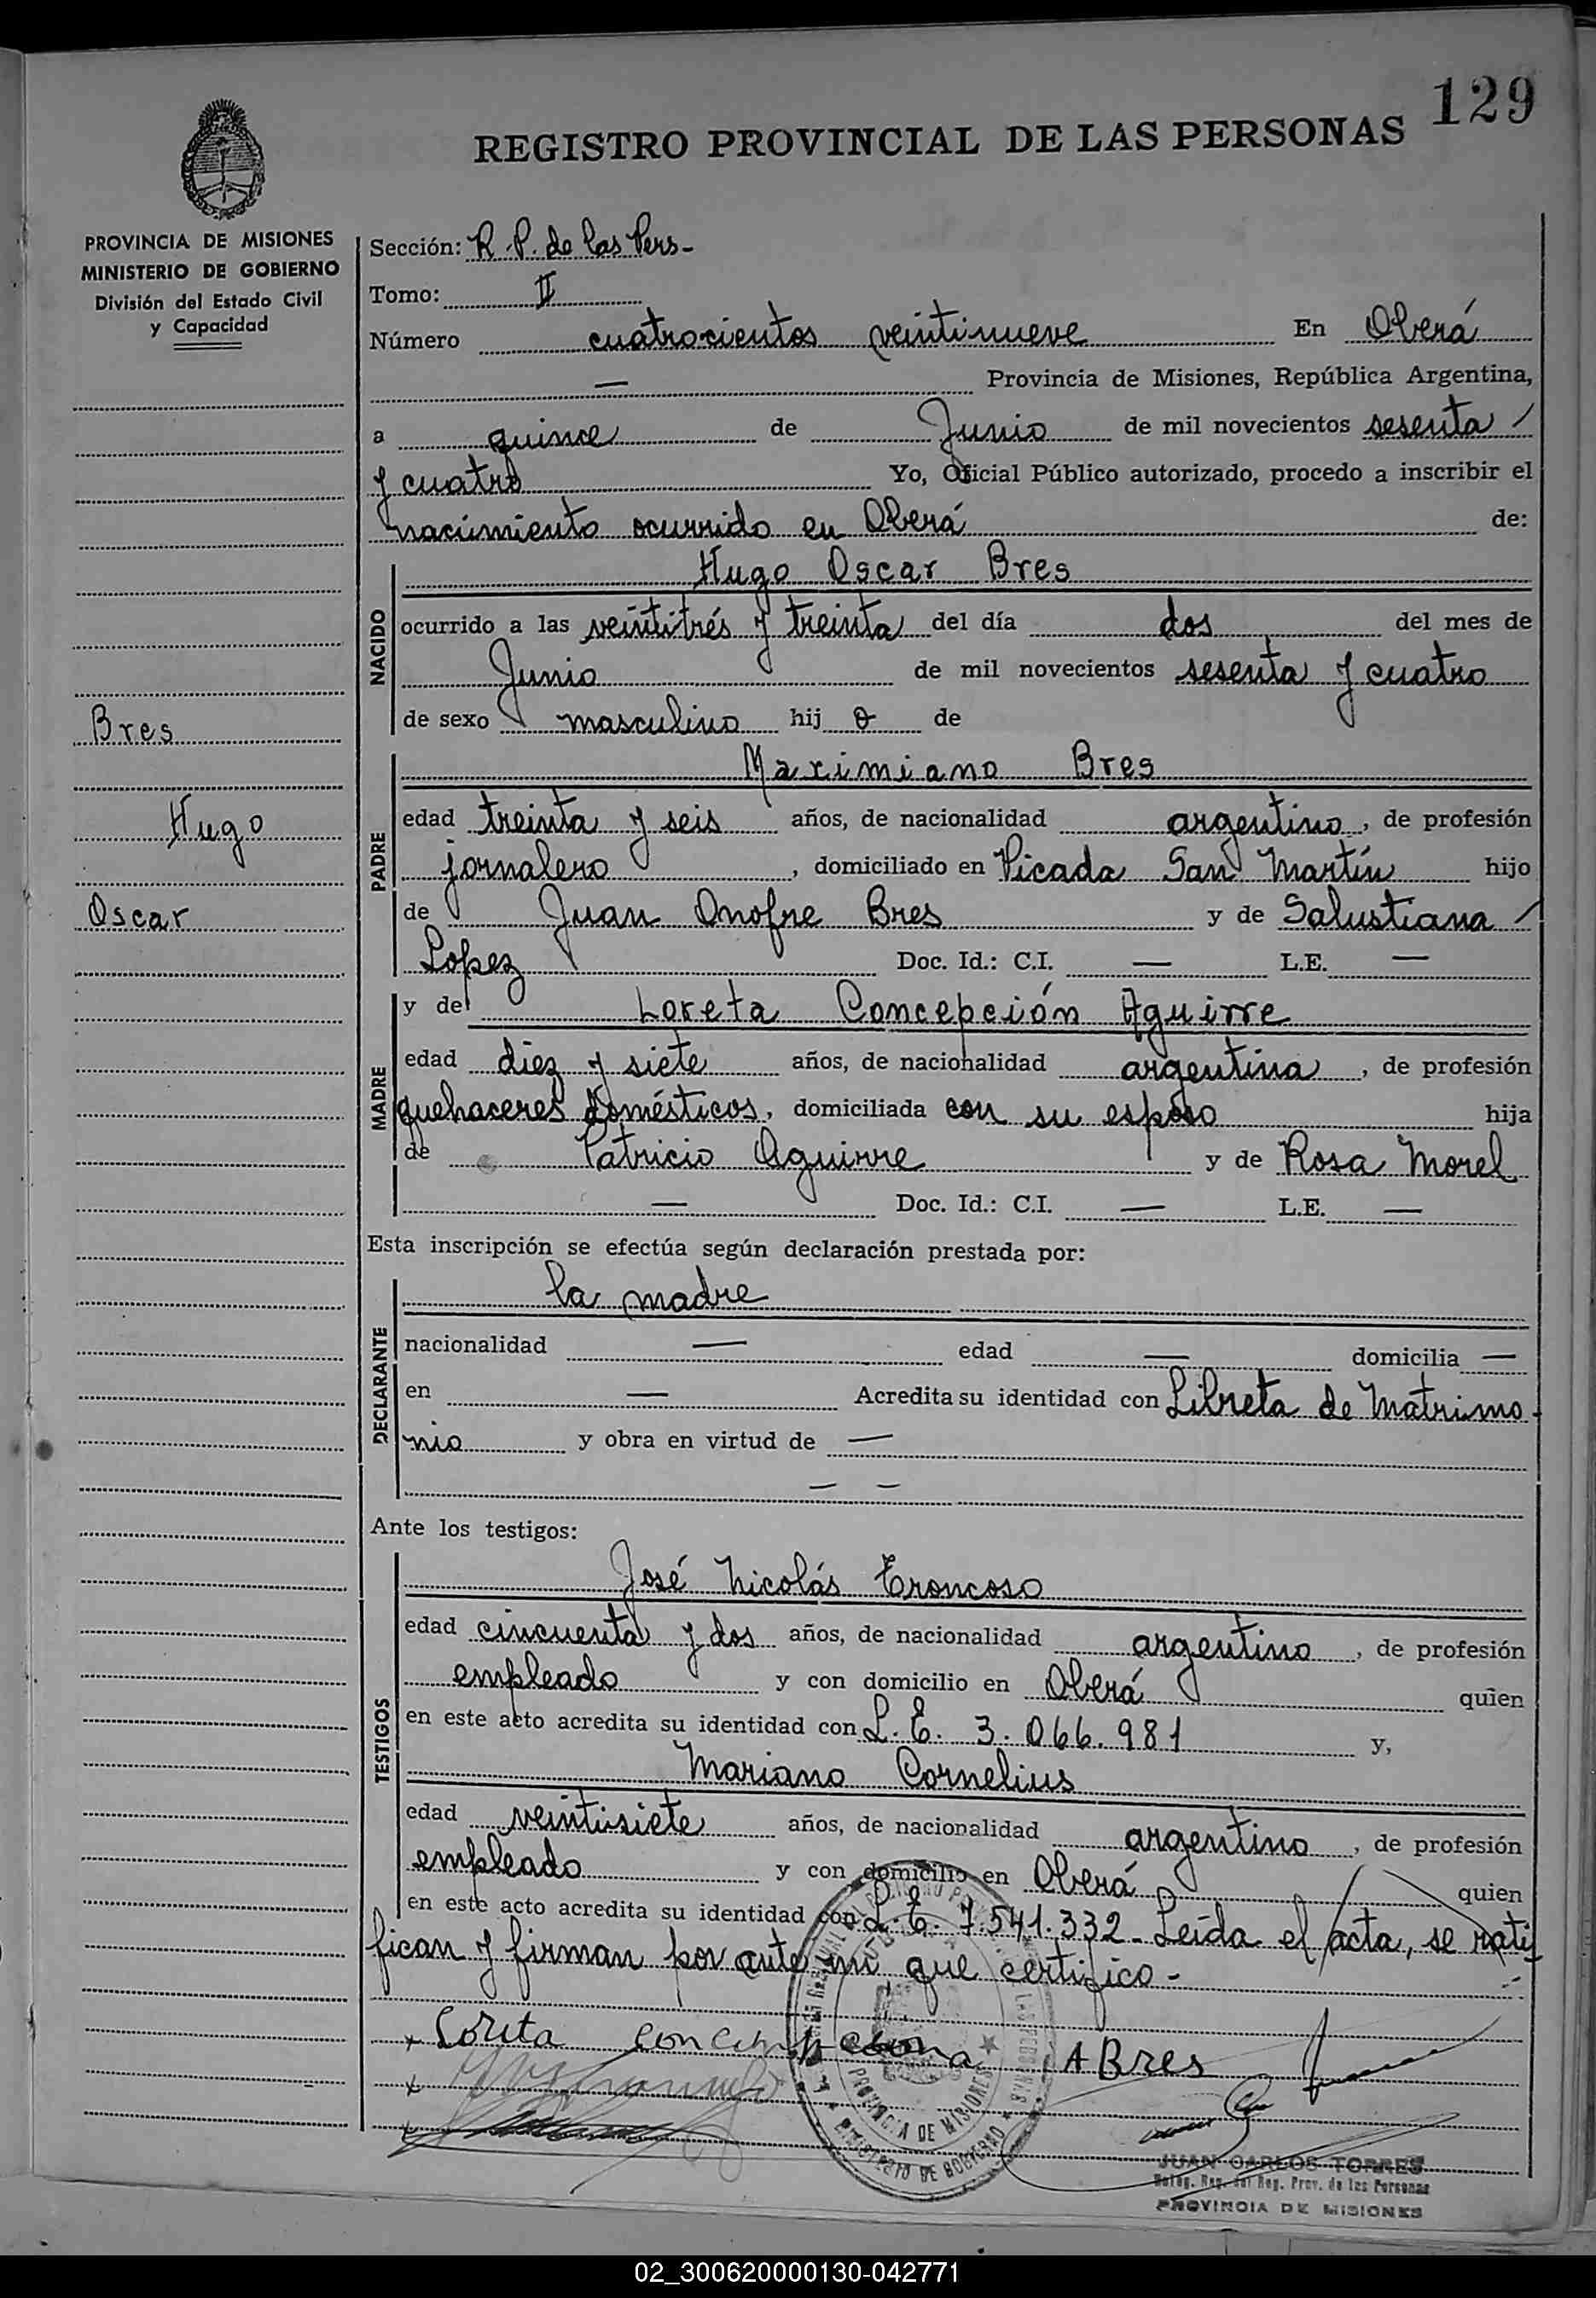 129
REGISTRO PROVINCIAL DE LAS PERSONAS
PROVINCIA DE MISIONES
MINISTERIO DE GOBIERNO
División del Estado Civil
y Capacidad
Sección: R. P. de las Pers-
Tomo: II
Número cuatrocientos veintinueve En Oberá
— Provincia de Misiones, República Argentina,
a quince de Junio de mil novecientos sesenta /
y cuatro Yo, Oficial Público autorizado, procedo a inscribir el
nacimiento ocurrido en Oberá de:
NACIDO
Hugo Oscar Bres
ocurrido a las veintitrés y treinta del día dos del mes de
Junio de mil novecientos sesenta y cuatro
de sexo masculino hij o de
Bres
Hugo
Oscar
PADRE
Maximiano Bres
edad treinta y seis años, de nacionalidad argentino, de profesión
jornalero, domiciliado en Picada San Martín hijo
de Juan Onofre Bres y de Salustiana /
Lopez Doc. Id.: C.I. — L.E. —
MADRE
y de Loreta Concepción Aguirre
edad diez y siete años, de nacionalidad argentina, de profesión
quehaceres domésticos, domiciliada con su esposo hija
de Patricio Aguirre y de Rosa Morel
— Doc. Id.: C.I. — L.E. —
Esta inscripción se efectúa según declaración prestada por:
DECLARANTE
la madre
nacionalidad — edad — domicilia —
en — Acredita su identidad con Libreta de Matrimo-
nio y obra en virtud de —
— —
Ante los testigos:
TESTIGOS
José Nicolás Troncoso
edad cincuenta y dos años, de nacionalidad argentino, de profesión
empleado y con domicilio en Oberá quien
en este acto acredita su identidad con L. E. 3.066.981 y,
Mariano Cornelius
edad veintisiete años, de nacionalidad argentino, de profesión
empleado y con domicilio en Oberá quien
en este acto acredita su identidad con L. E. 7.541.332 - Leída el acta, se rati
fican y firman por ante mí, que certifico -
Loreta A Bres
PROVINCIA DE MISIONES
MINISTERIO DE GOBIERNO
JUAN CARLOS TORRES
Reg. Prov. de las Personas
PROVINCIA DE MISIONES
02_300620000130-042771